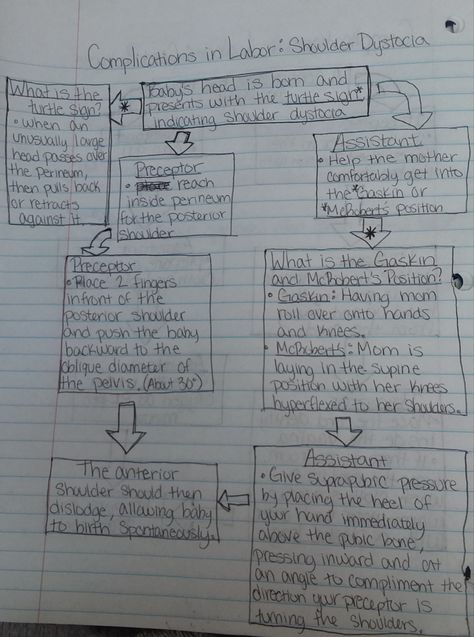 Complications in Labor: Shoulder Dystocia
Baby's head is born and
presents with the turtle sign*
indicating shoulder dystocia
*
What is the
turtle sign?
• When an
unusually large
head passes over
the perineum,
then pulls back
or retracts
against it.
Preceptor
• reach
inside perineum
for the posterior
shoulder
Assistant
• Help the mother
comfortably get into
the *Gaskin or
*McRobert's position
*
Preceptor
• Place 2 fingers
infront of the
posterior shoulder
and push the baby
backward to the
oblique diameter of
the pelvis. (About 30°)
What is the Gaskin
and McRobert's Position?
• Gaskin: Having mom
roll over onto hands
and knees.
• McRoberts: Mom is
laying in the supine
position with her knees
hyperflexed to her shoulders.
Assistant
• Give suprapubic pressure
by placing the heel of
your hand immediately
above the pubic bone,
pressing inward and at
an angle to compliment the
direction your preceptor is
turning the shoulders.
The anterior
shoulder should then
dislodge, allowing baby
to birth spontaneously.